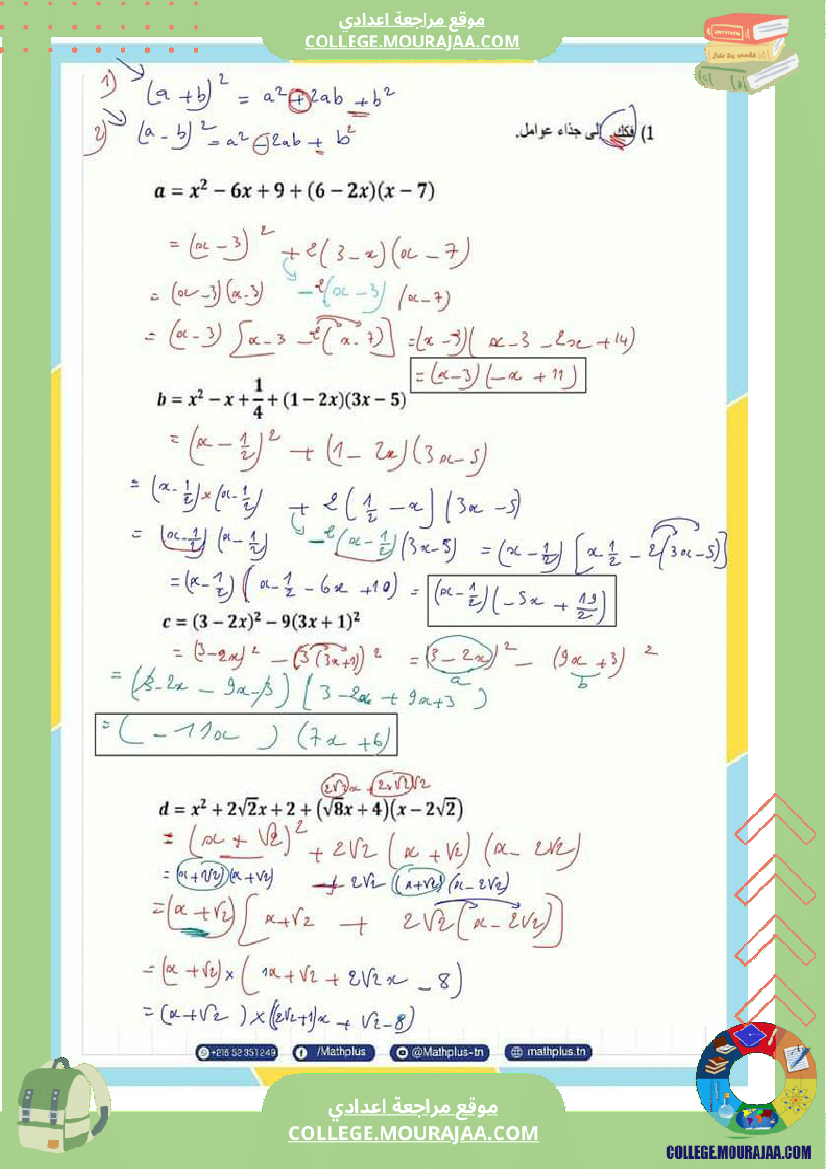 موقع مراجعة اعدادي
COLLEGE.MOURAJAA.COM
1) (a + b)² = a² + 2ab + b²
2) (a - b)² = a² - 2ab + b²
1) فكك إلى جذاء عوامل.
a = x² − 6x + 9 + (6 − 2x)(x − 7)
= (x - 3)² + 2(3 - x)(x - 7)
= (x - 3)(x - 3) - 2(x - 3)(x - 7)
= (x - 3)[x - 3 - 2(x - 7)] = (x - 3)(x - 3 - 2x + 14)
= (x - 3)(-x + 11)
b = x² − x + 1/4 + (1 − 2x)(3x − 5)
= (x - 1/2)² + (1 - 2x)(3x - 5)
= (x - 1/2) × (x - 1/2) + 2(1/2 - x)(3x - 5)
= (x - 1/2)(x - 1/2) - 2(x - 1/2)(3x - 5) = (x - 1/2)[x 1/2 - 2(3x - 5)]
= (x - 1/2)(x - 1/2 - 6x + 10) = (x - 1/2)(-5x + 19/2)
c = (3 − 2x)² − 9(3x + 1)²
= (3 - 2x)² - (3(3x + 1))² = (3 - 2x)² - (9x + 3)²
a b
= (3 - 2x - 9x - 3)(3 - 2x + 9x + 3)
= (-11x)(7x + 6)
2√2x + 2×√2√2
d = x² + 2√2x + 2 + (√8x + 4)(x − 2√2)
= (x + √2)² + 2√2(x + √2)(x - 2√2)
= (x + √2)(x + √2) + 2√2(x + √2)(x - 2√2)
= (x + √2)[x + √2 + 2√2(x - 2√2)]
= (x + √2) × (1x + √2 + 2√2x - 8)
= (x + √2) × ((2√2 + 1)x + √2 - 8)
+216 52 351 249 /Mathplus @Mathplus-tn mathplus.tn
موقع مراجعة اعدادي
COLLEGE.MOURAJAA.COM
COLLEGE.MOURAJAA.COM